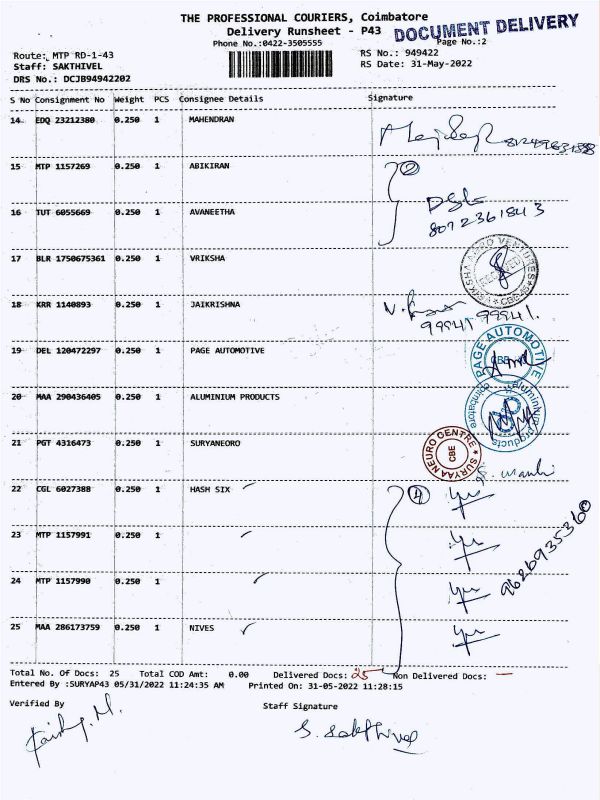 THE PROFESSIONAL COURIERS, Coimbatore
DOCUMENT DELIVERY
Delivery Runsheet - P43
Phone No.:0422-3505555
Page No.:2
Route: MTP RD-1-43
RS No.: 949422
Staff: SAKTHIVEL
RS Date: 31-May-2022
DRS No.: DCJB94942202
S No Consignment No Weight PCS Consignee Details Signature
14 EDQ 23212380 0.250 1 MAHENDRAN
15 MTP 1157269 0.250 1 ABIKIRAN
2
16 TUT 6055669 0.250 1 AVANEETHA
8072361843
17 BLR 1750675361 0.250 1 VRIKSHA
VRIKSHA AGRO VENTURES
CBE
18 KRR 1140893 0.250 1 JAIKRISHNA
99941 99941.
19 DEL 120472297 0.250 1 PAGE AUTOMOTIVE
PAGE AUTOMOTIVE
CBE
20 MAA 290436405 0.250 1 ALUMINIUM PRODUCTS
Aluminium products
Coimbatore
21 PGT 4316473 0.250 1 SURYANEORO
SURYAA NEURO CENTRE
CBE
22 CGL 6027388 0.250 1 HASH SIX
4
23 MTP 1157991 0.250 1
24 MTP 1157990 0.250 1
9626935360
25 MAA 286173759 0.250 1 NIVES
Total No. Of Docs: 25 Total COD Amt: 0.00 Delivered Docs: 25 Non Delivered Docs: —
Entered By :SURYAP43 05/31/2022 11:24:35 AM Printed On: 31-05-2022 11:28:15
Verified By
Staff Signature
S. Sakthivel